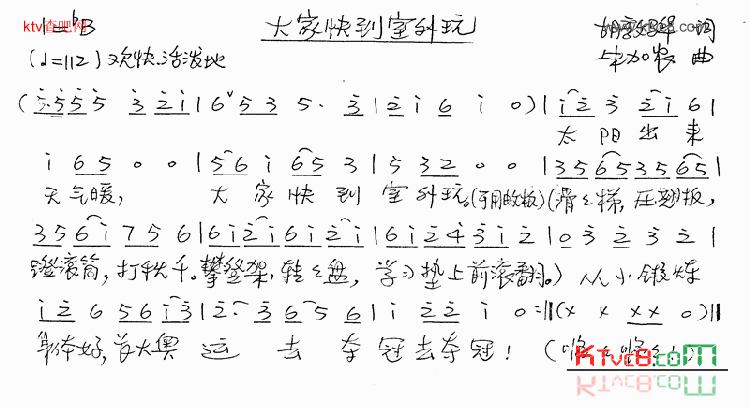 ktv查吧网
1=♭B 大家快到室外玩 词
(♩=112) 欢快活泼地 曲
(5555 3221|6ˇ535 5· 3|2 1 6 1 0)|123 216|
太阳出来
1 65 0 0|561 653|5 32 0 0|3565 3565|
天气暖, 大家快到室外玩。(滑滑梯,压翘板,
3561756|612161 21|612431 2|0 3 2 3 2|
蹬滚筒,打秋千。攀登架,转转盘,学习垫上前滚翻。)从小锻炼
12 6 5613|2· 3656|1 22 1 0:‖(x x xx 0)‖
身体好,首大奥运去夺冠去夺冠!(
KTvc8com